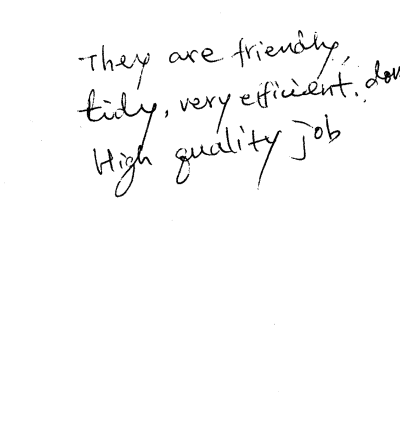 They are friendly,
tidy, very efficient.
High quality job